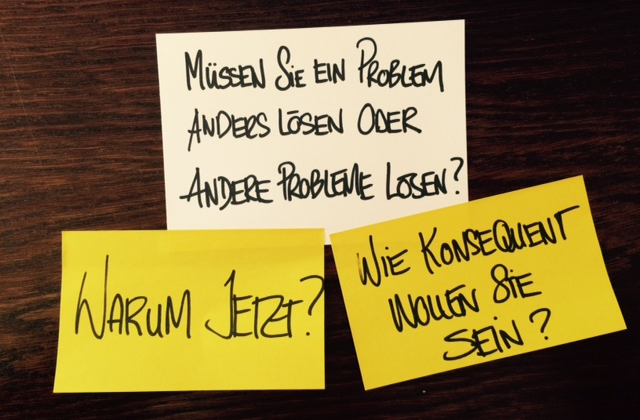 MÜSSEN SIE EIN PROBLEM
ANDERS LÖSEN ODER
ANDERE PROBLEME LÖSEN?
WARUM JETZT?
WIE KONSEQUENT
WOLLEN SIE
SEIN?